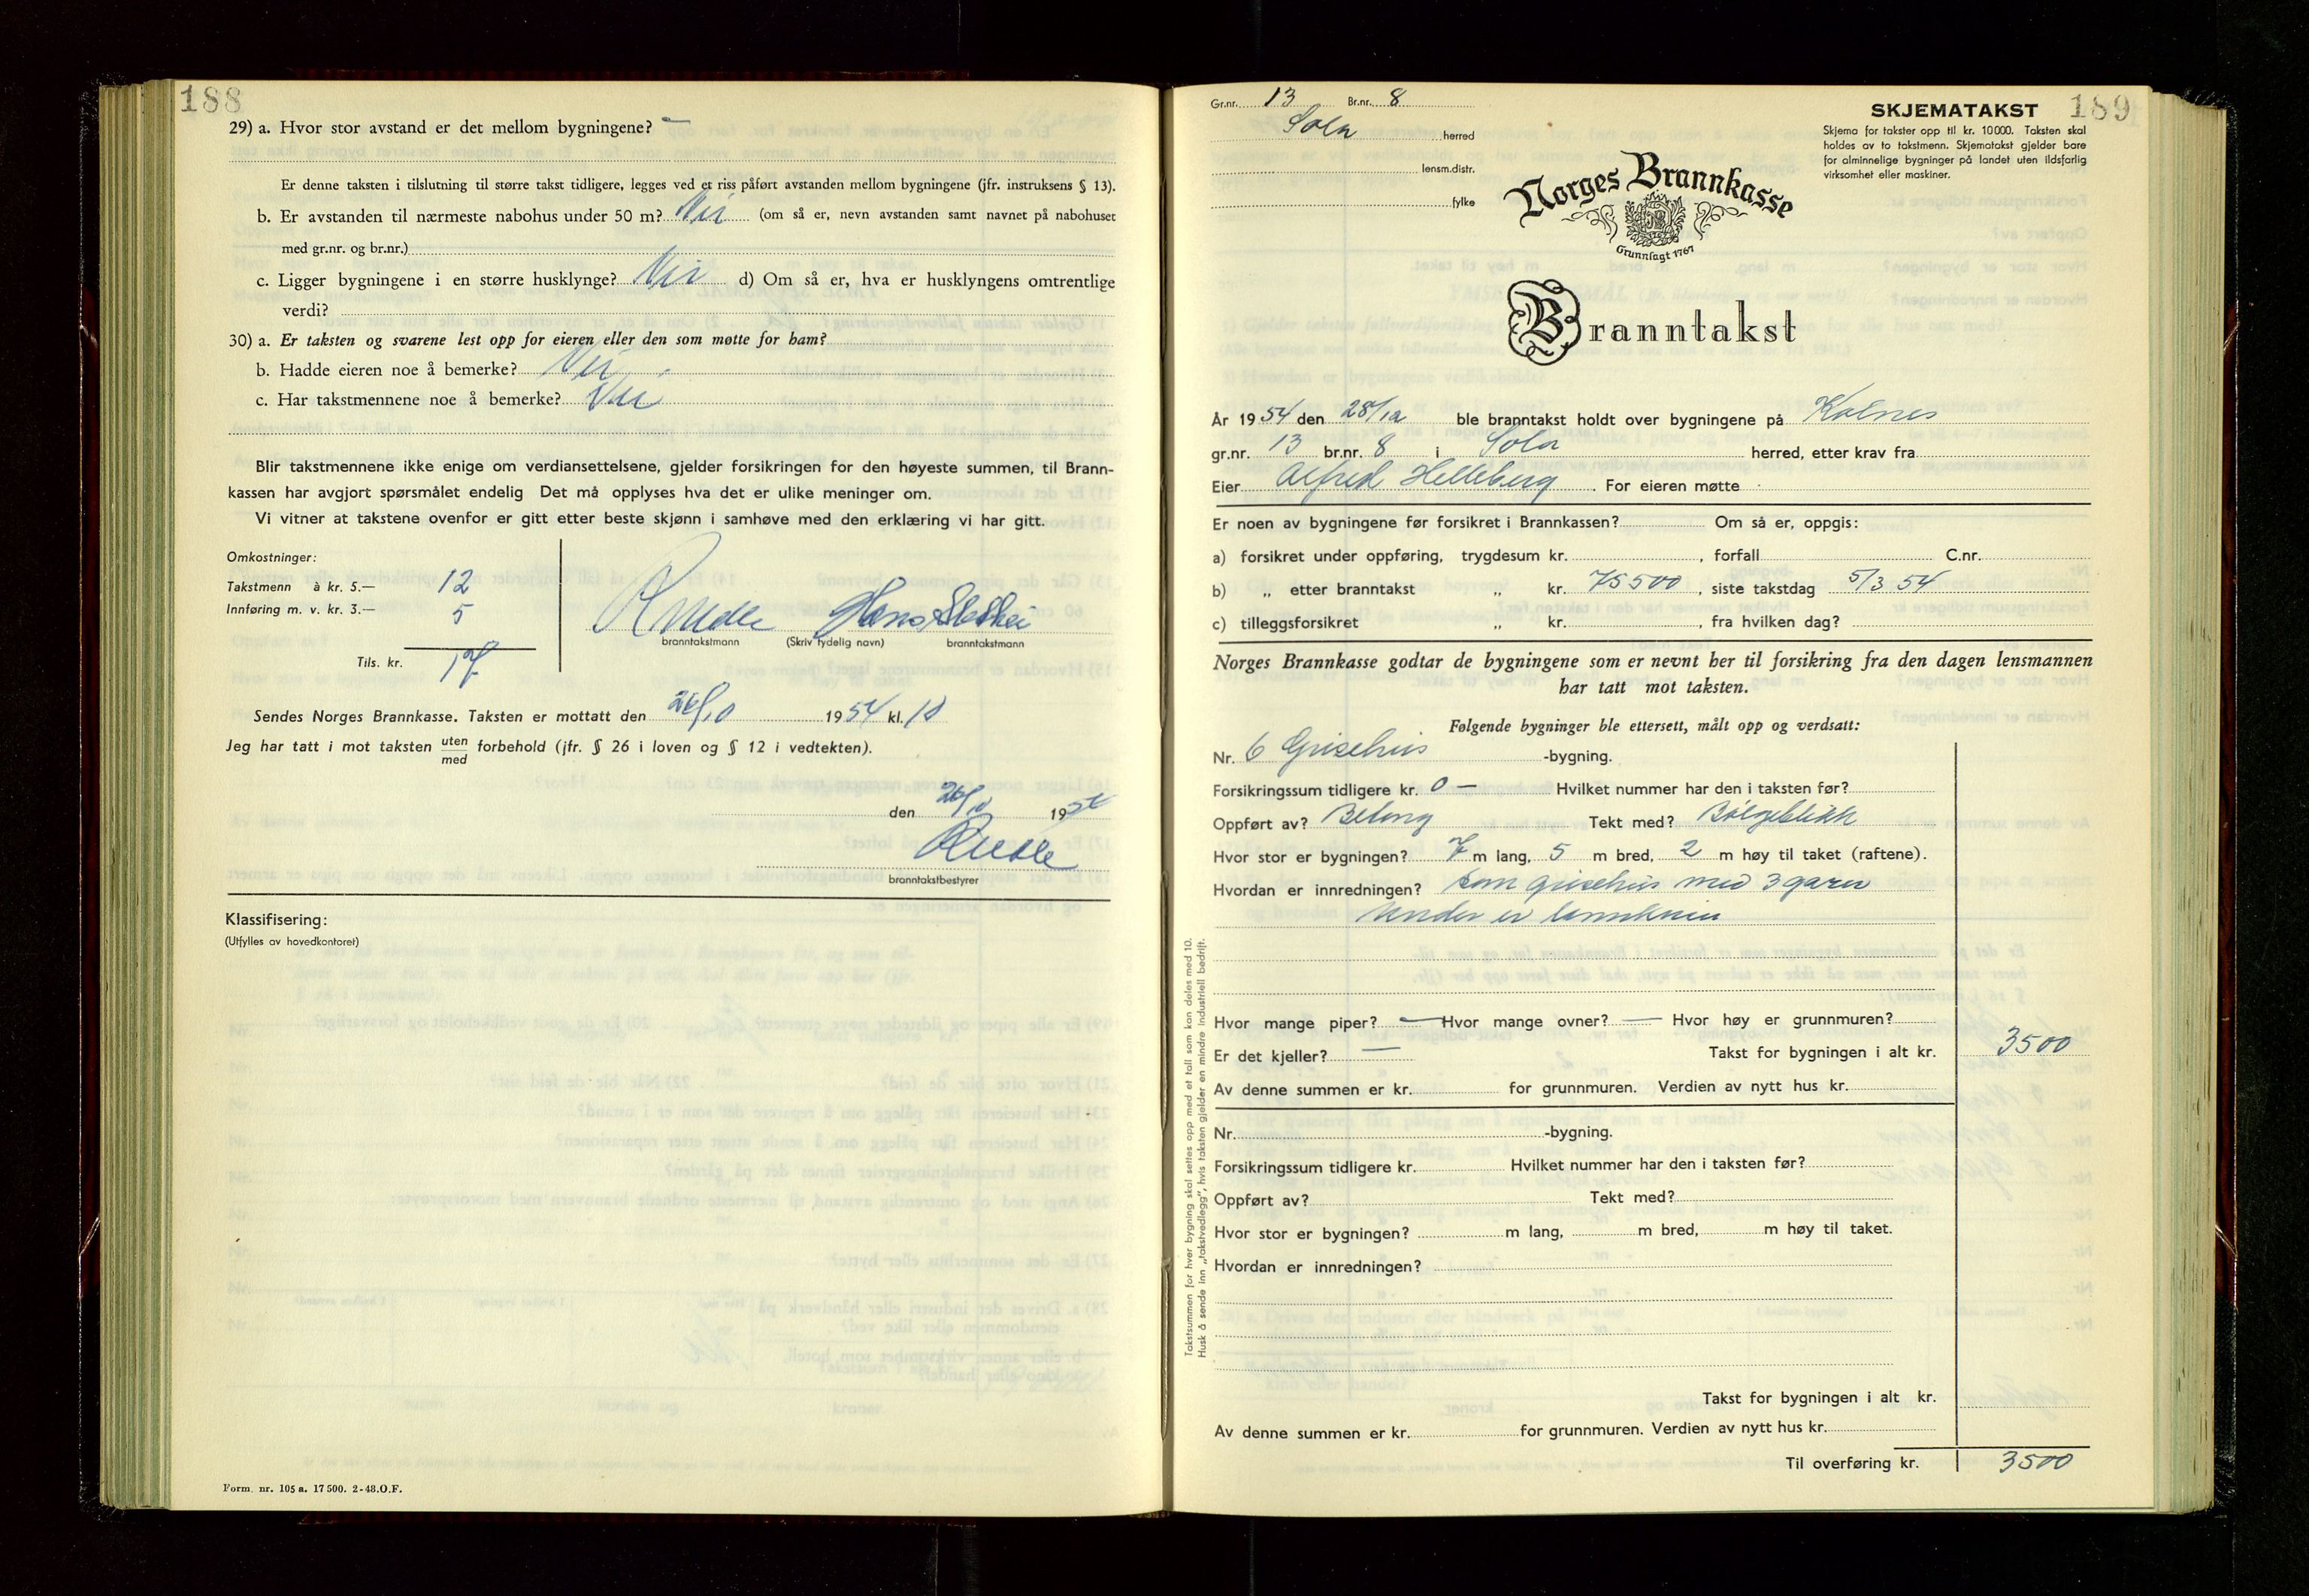 188
29) a. Hvor stor avstand er det mellom bygningene? —
Er denne taksten i tilslutning til større takst tidligere, legges ved et riss påført avstanden mellom bygningene (jfr. instruksens § 13).
b. Er avstanden til nærmeste nabohus under 50 m? Nei (om så er, nevn avstanden samt navnet på nabohuset
med gr.nr. og br.nr.)
c. Ligger bygningene i en større husklynge? Nei d) Om så er, hva er husklyngens omtrentlige
verdi?
30) a. Er taksten og svarene lest opp for eieren eller den som møtte for ham?
b. Hadde eieren noe å bemerke? Nei
c. Har takstmennene noe å bemerke? Nei
Blir takstmennene ikke enige om verdiansettelsene, gjelder forsikringen for den høyeste summen, til Brann-
kassen har avgjort spørsmålet endelig Det må opplyses hva det er ulike meninger om.
Vi vitner at takstene ovenfor er gitt etter beste skjønn i samhøve med den erklæring vi har gitt.
Omkostninger:
Takstmenn à kr. 5.— 12
Innføring m. v. kr. 3.— 5
Tils. kr. 17
branntakstmann (Skriv tydelig navn) branntakstmann
Sendes Norges Brannkasse. Taksten er mottatt den 26/10 1954 kl. 10
Jeg har tatt i mot taksten uten/med forbehold (jfr. § 26 i loven og § 12 i vedtekten).
den 26/10 1954
branntakstbestyrer
Klassifisering:
(Utfylles av hovedkontoret)
Form. nr. 105 a. 17 500. 2-48. O.F.
Gr.nr. 13 Br.nr. 8
Sola herred
lensm.distr.
fylke
SKJEMATAKST 189
Skjema for takster opp til kr. 10 000. Taksten skal
holdes av to takstmenn. Skjematakst gjelder bare
for alminnelige bygninger på landet uten ildsfarlig
virksomhet eller maskiner.
Norges Brannkasse
Grunnlagt 1767
Branntakst
År 1954 den 28/12 ble branntakst holdt over bygningene på Kolnes
gr.nr. 13 br.nr. 8 i Sola herred, etter krav fra
Eier Alfred Helleberg. For eieren møtte
Er noen av bygningene før forsikret i Brannkassen? Om så er, oppgis:
a) forsikret under oppføring, trygdesum kr. , forfall C.nr.
b) „ etter branntakst „ kr. 75500, siste takstdag 5/3 54
c) tilleggsforsikret „ kr. , fra hvilken dag?
Norges Brannkasse godtar de bygningene som er nevnt her til forsikring fra den dagen lensmannen
har tatt mot taksten.
Følgende bygninger ble ettersett, målt opp og verdsatt:
Nr. 6 Grisehus -bygning.
Forsikringssum tidligere kr. 0 — Hvilket nummer har den i taksten før?
Oppført av? Betong Tekt med? Bølgeblikk
Hvor stor er bygningen? 7 m lang, 5 m bred, 2 m høy til taket (raftene).
Hvordan er innredningen? Som grisehus med 3 garer
Under er lannkum
Hvor mange piper? — Hvor mange ovner? — Hvor høy er grunnmuren?
Er det kjeller? — Takst for bygningen i alt kr. 3500
Av denne summen er kr. for grunnmuren. Verdien av nytt hus kr.
Nr. -bygning.
Forsikringssum tidligere kr. Hvilket nummer har den i taksten før?
Oppført av? Tekt med?
Hvor stor er bygningen? m lang, m bred, m høy til taket.
Hvordan er innredningen?
Takst for bygningen i alt kr.
Av denne summen er kr. for grunnmuren. Verdien av nytt hus kr.
Til overføring kr. 3500
Takstsummen for hver bygning skal settes opp med et tall som kan deles med 10.
Husk å sende inn „takstvedlegg", hvis taksten gjelder en mindre industriell bedrift.